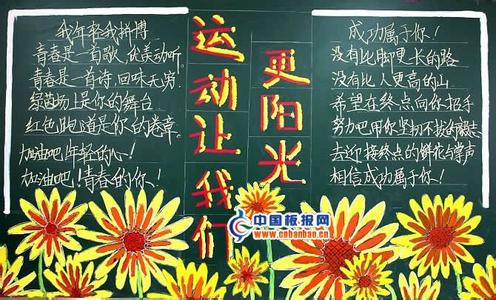 我年轻我拼博
青春是一首歌，优美动听
青春是一首诗，回味无穷
绿茵场上是你的舞台
红色跑道是你的卷章
加油吧！年轻的心！
加油吧！青春的你！
运动让我们
更阳光
成功属于你！
没有比脚更长的路
没有比人更高的山
希望在终点向你招手
努力吧用你坚韧不拔的
去迎接终点的鲜花与掌声
相信成功属于你！
中国板报网
www.cnbanbao.cn